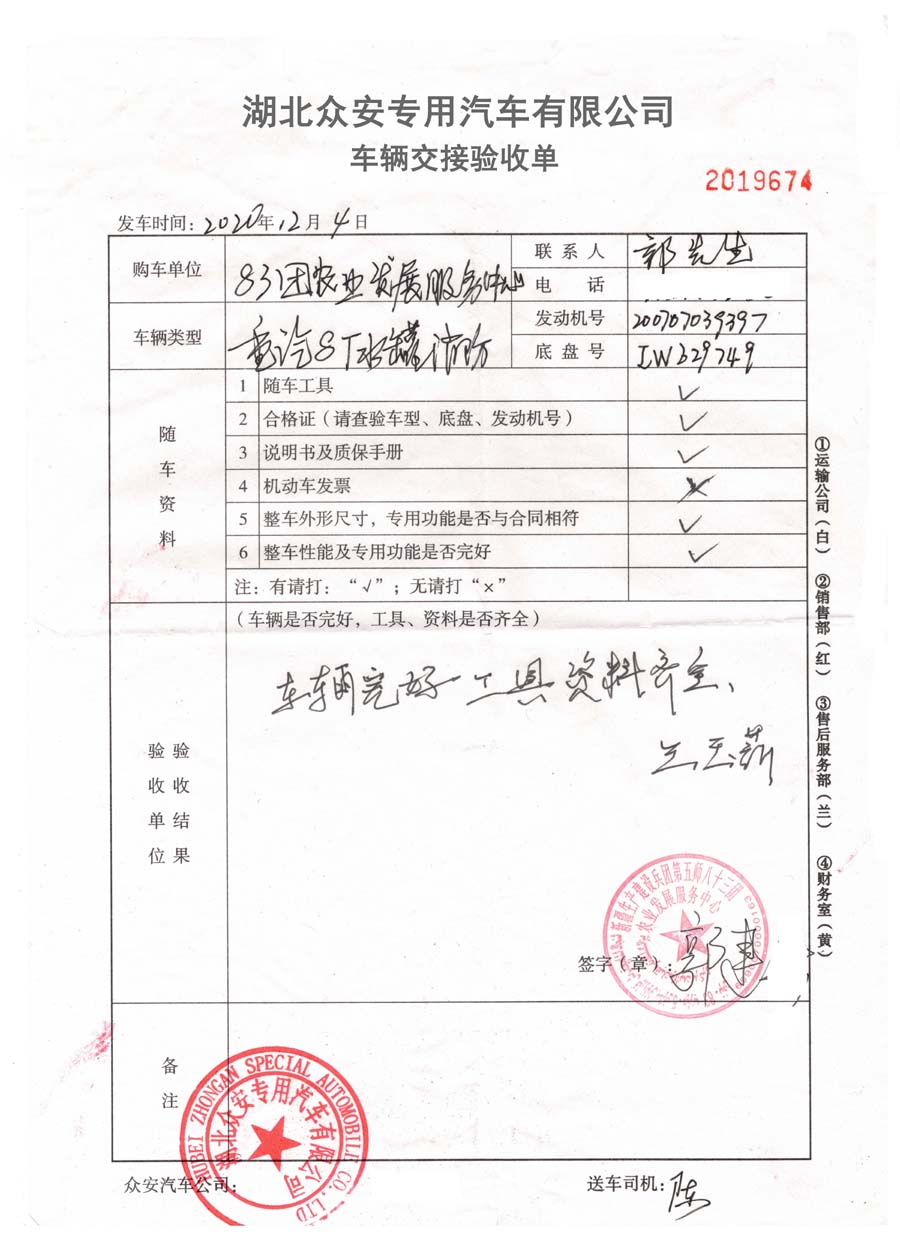 湖北众安专用汽车有限公司
车辆交接验收单
2019674
发车时间：2020年12月4日
购车单位 83团农业发展服务中心 联系人 郭先生
电话
车辆类型 重汽8T水罐消防 发动机号 200707039397
底盘号 LW329749
随车资料
1 随车工具 ✓
2 合格证（请查验车型、底盘、发动机号） ✓
3 说明书及质保手册 ✓
4 机动车发票 ×
5 整车外形尺寸，专用功能是否与合同相符 ✓
6 整车性能及专用功能是否完好 ✓
注：有请打：“√”；无请打“×”
验收单位验收结果
（车辆是否完好，工具、资料是否齐全）
车辆完好 工具资料齐全、
新疆生产建设兵团第五师八十三团
农业发展服务中心
签字（章）：郭建
备注
HUBEI ZHONGAN SPECIAL AUTOMOBILE CO.,LTD
湖北众安专用汽车有限公司
众安汽车公司：
送车司机：陈
①运输公司（白） ②销售部（红） ③售后服务部（兰） ④财务室（黄）